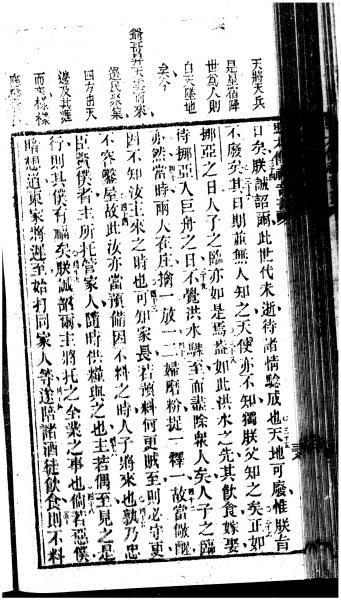 天將天兵
是星宿降
世爲人則
自天墜地
矣今
選民聚集
四方由天
邊及其涯
樣樣
應驗
曰矣朕誠詔爾此世代未逝待諸情騐成也天地可廢惟朕言
不廢矣其日期並無人知之天使亦不知獨朕父知之矣正如
挪亞之日人子之臨亦如是焉蓋如此洪水之先其飲食嫁娶
待挪亞入巨舟之日不覺洪水驟至而盡除衆人矣人子之臨
亦然當時兩人在庄擒一放一二婦磨粉捉一釋一故當儆醒
因不知汝主來之時也可知家長若預料何更賊至則必守更
不容鑿屋故此汝亦當預備因不料之時人子將來也孰乃忠
臣賢僕者主所托管家人隨時供糧與之也主若偶至見之是
行則其僕有福矣朕誠詔爾主將托之全業之事也倘若惡僕
暗想道東家將遲至始打同家人等逹陪諸酒徒飲食則不料